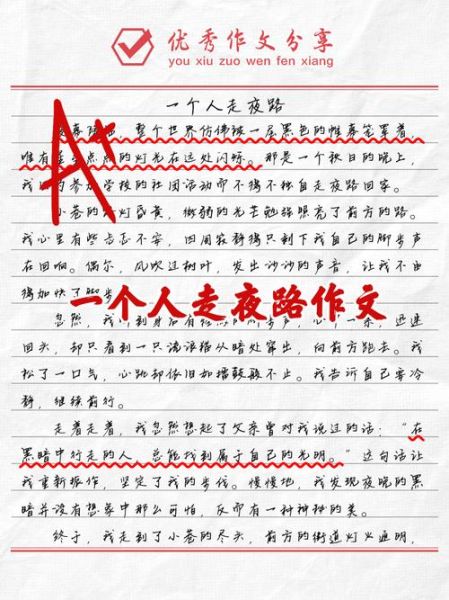 优秀作文分享
you xiu zuo wen fen xiang
A+
一个人走夜路
幕降临，整个世界仿佛被一层黑色的帷幕笼罩着，
唯有点点的灯光在远处闪烁。那是一个秋日的晚上，
我因为参加学校的社团活动而不得不独自走夜路回家。
小巷的路灯昏黄，微弱的光芒勉强照亮了前方的路。
我心里有些忐忑不安，四周寂静得只剩下我自己的脚步声
在回响。偶尔，风吹过树叶，发出沙沙的声音，让我不由
得加快了脚步
一个人走夜路作文
忽然，我听到身后有步声，心中一紧，迅速
回头，却只看到一只流浪猫从暗处窜出，向前方跑去。我
松了一口气，心跳却依旧如擂鼓般不止。我告诉自己要冷
静，继续前行。
走着走着，我忽然想起了父亲曾对我说过的话：“在
黑暗中行走的人，总能找到属于自己的光明。”这句话让
我重新振作，坚定了我的步伐。慢慢地，我发现夜晚的黑
暗并没有想象中那么可怕，反而有一种神秘的美。
终于，我走到了小巷的尽头，前方的街道灯火通明，